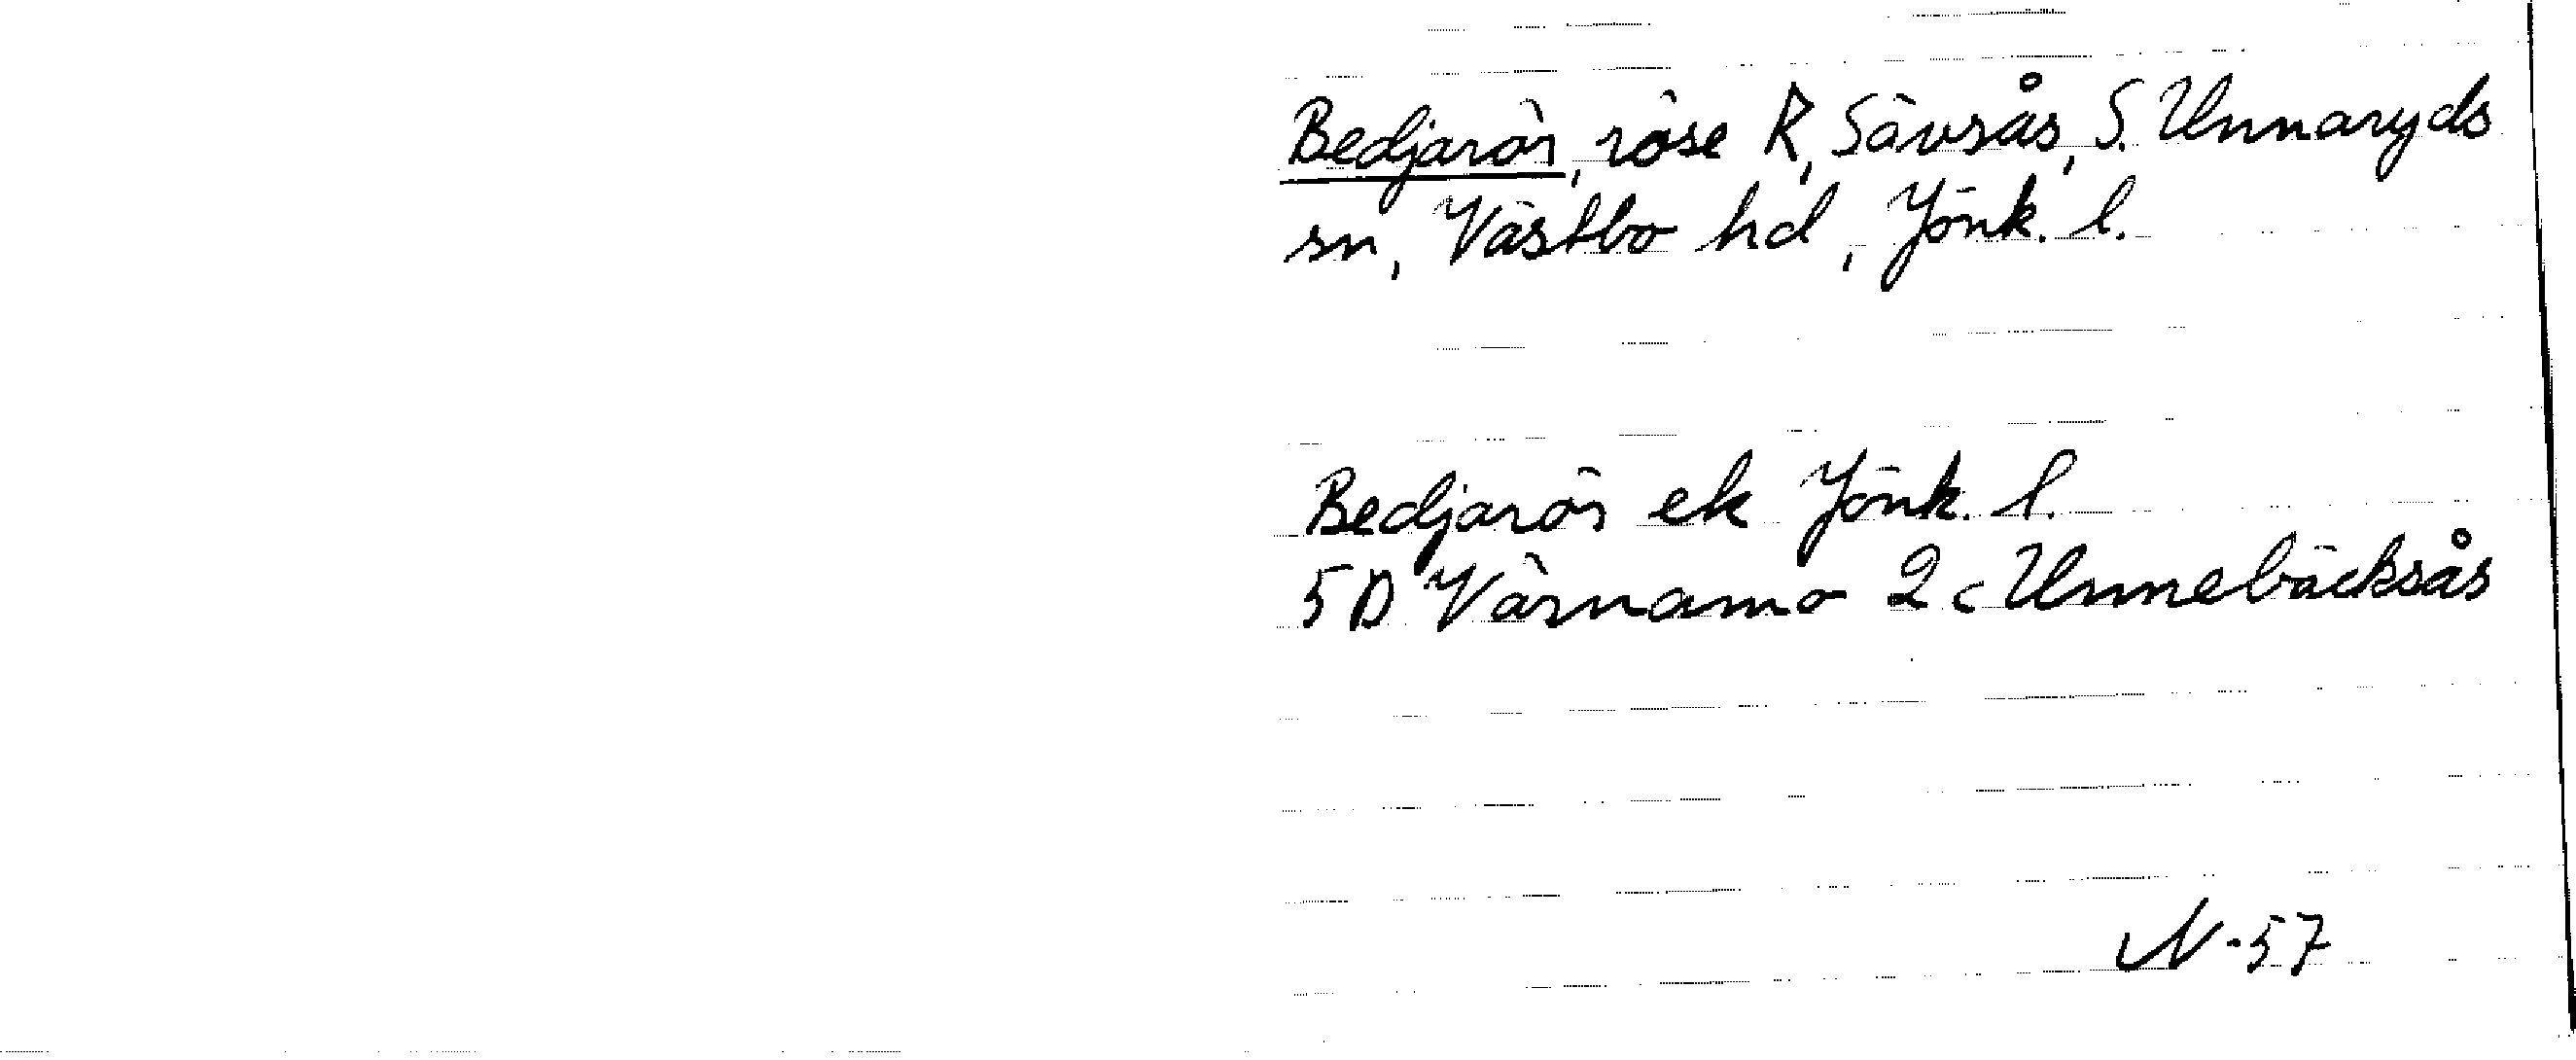 Bedjarör, röse R, Sävsås, S. Unnaryds
sn, Västbo hd, Jönk. l.
Bedjarör ek Jönk. l.
5D Värnamo 2 c Unnebäcksås
N-57